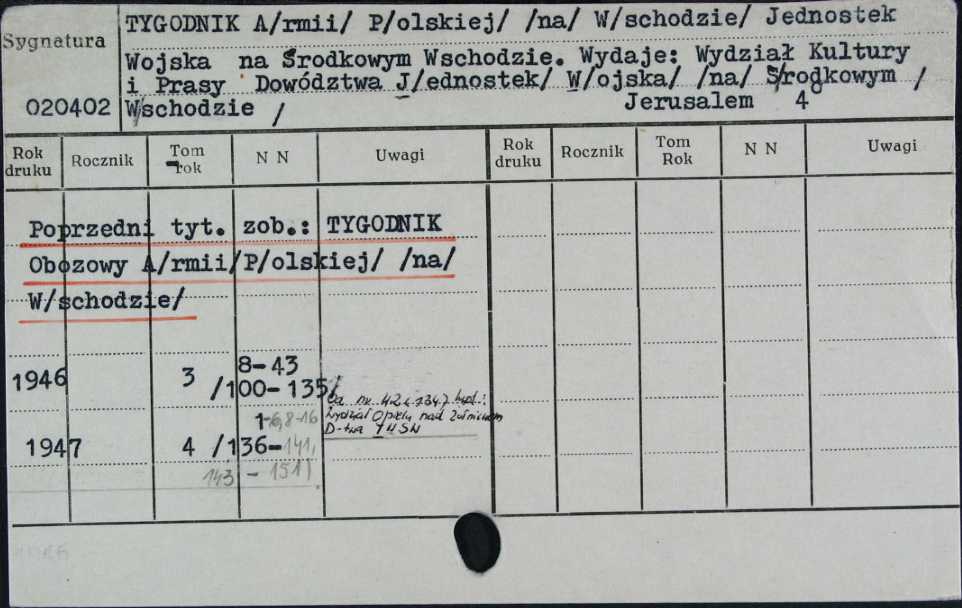 Sygnatura
020402
TYGODNIK A/rmii/ P/olskiej/ /na/ W/schodzie/ Jednostek
Wojska na Środkowym Wschodzie. Wydaje: Wydział Kultury
i Prasy Dowództwa J/ednostek/ W/ojska/ /na/ Ś/rodkowym /
W/schodzie / Jerusalem 4°
Rok druku Rocznik Tom rok N N Uwagi Rok druku Rocznik Tom Rok N N Uwagi
Poprzedni tyt. zob.: TYGODNIK
Obozowy A/rmii/P/olskiej/ /na/
W/schodzie/
1946 3 8-43
/100-135/
Od nr. 42 /134/ wyd.:
Wydział Opieki nad Żołnierzem
D-twa JWSW
1-6,8-16
1947 4 /136-141,
143 - 151/